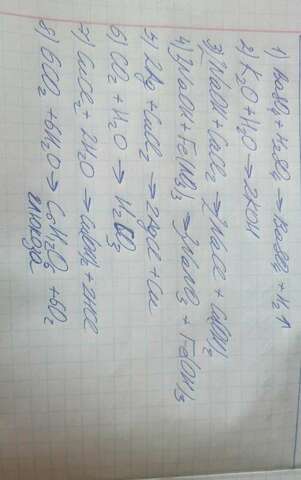 1) BaSO₃ + H₂SO₄ → BaSO₄ + H₂↑
2) K₂O + H₂O → 2KOH
3) 2NaOH + CuCl₂ → 2NaCl + Cu(OH)₂
4) 3NaOH + Fe(NO₃)₃ → 3NaNO₃ + Fe(OH)₃
5) 2Ag + CuCl₂ → 2AgCl + Cu
6) CO₂ + H₂O → H₂CO₃
7) CuCl₂ + 2H₂O → Cu(OH)₂ + 2HCl
8) 6CO₂ + 6H₂O → C₆H₁₂O₆ + 6O₂
глюкоза